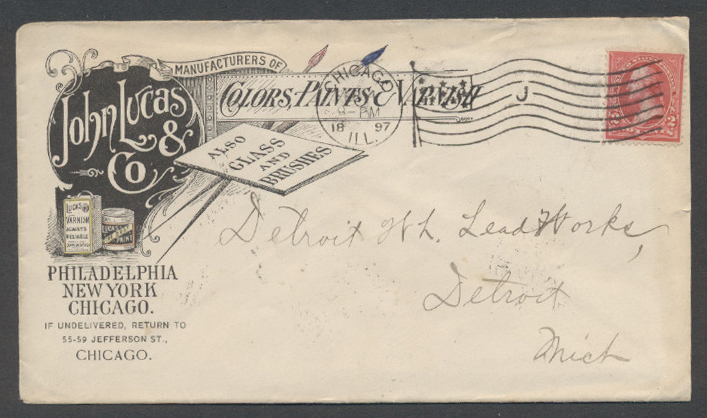 MANUFACTURERS OF
John Lucas
& Co
COLORS, PAINTS & VARNISH
ALSO
GLASS
AND
BRUSHES
CHICAGO
-PM
18 97
ILL.
J
2 2
LUCAS
VARNISH
ALWAYS
RELIABLE
LUCAS
PAINT
Detroit Wh. Lead Works,
Detroit
Mich
PHILADELPHIA
NEW YORK
CHICAGO.
IF UNDELIVERED, RETURN TO
55-59 JEFFERSON ST.,
CHICAGO.